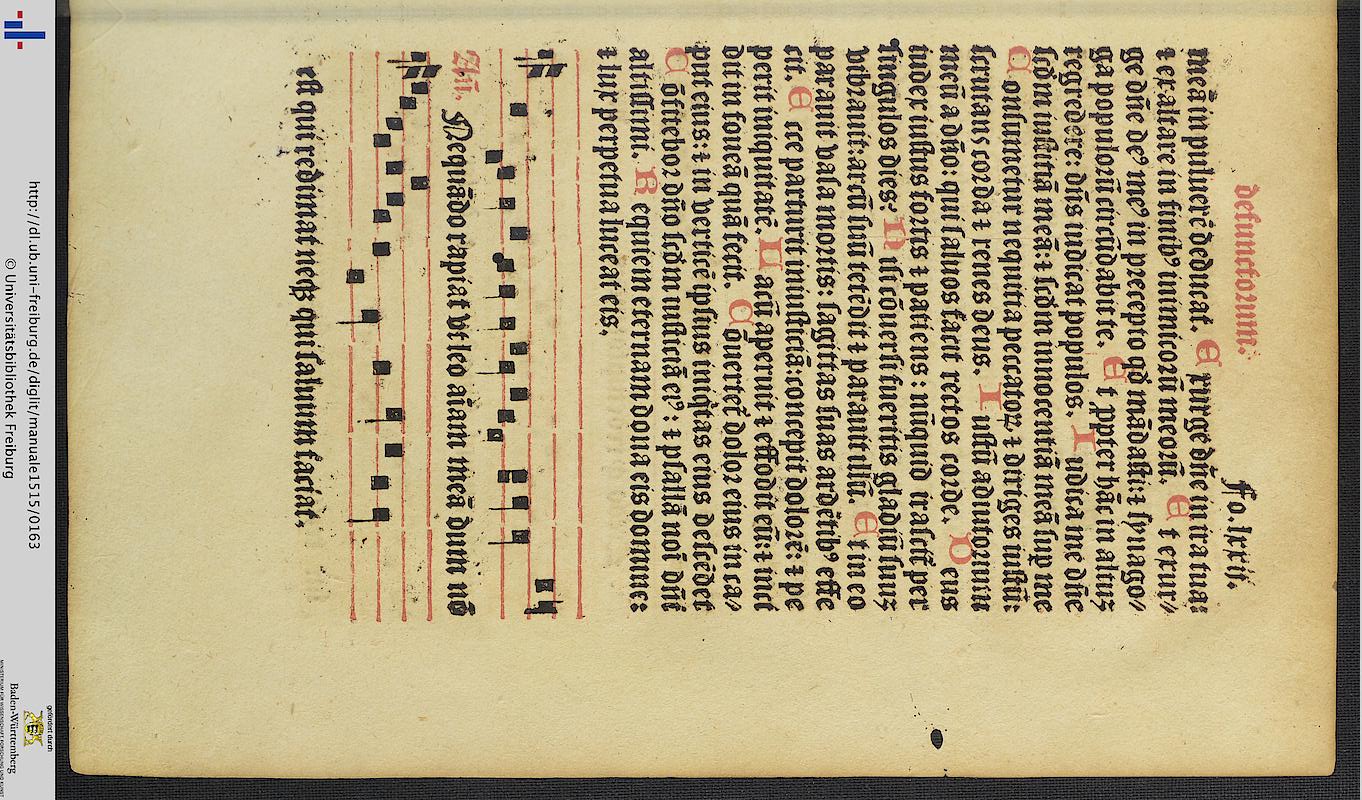 defunctorum.
Fo.lxxii.
meā in puluerē deducat. Exurge dn̄e in ira tua:
⁊ exaltare in finibꝰ inimicorū meorū. Et exur⸗
ge dn̄e deꝰ meꝰ in precepto qd̓ mādasti: ⁊ synago⸗
ga populorū circūdabit te. Et ꝓpter hāc in altuꝫ
regredere: dn̄s iudicat populos. Iudica me dn̄e
scd̓m iusticiā meā: ⁊ scd̓m innocentiā meā suꝑ me
Consumetur nequitia peccatoꝝ ⁊ diriges iustū:
scrutans corda ⁊ renes deus. Iustū adiutorium
meū a dn̄o: qui saluos facit rectos corde. Deus
iudex iustus fortis ⁊ patiens: nūquid irascit̄ per
singulos dies? Nisi cōuersi fueritis gladiū suuꝫ
vibrauit: arcū suū tetēdit ⁊ parauit illū. Et in eo
parauit vasa mortis: sagittas suas ardētibꝰ effe
cit. Ecce parturit iniusticiā: concepit dolorē: ⁊ pe
perit iniquitatē. Lacū aperuit ⁊ effodit eū: ⁊ inci
dit in foueā quā fecit. Cōuertet̄ dolor eius in ca⸗
put eius: ⁊ in verticē ipsius iniq̄tas eius descēdet
Cōfitebor dn̄o scd̓m iusticiā eiꝰ: ⁊ psallā noī dn̄i
altissimi. Requiem eternam dona eis domine:
⁊ lux perpetua luceat eis.
Añ. Nequādo rapiat vt leo aīam meā dum nō
est qui redimat neqꝫ qui saluum faciat.
http://dl.ub.uni-freiburg.de/diglit/manuale1515/0163
© Universitätsbibliothek Freiburg
gefördert durch
Baden-Württemberg
MINISTERIUM FÜR WISSENSCHAFT, FORSCHUNG UND KUNST